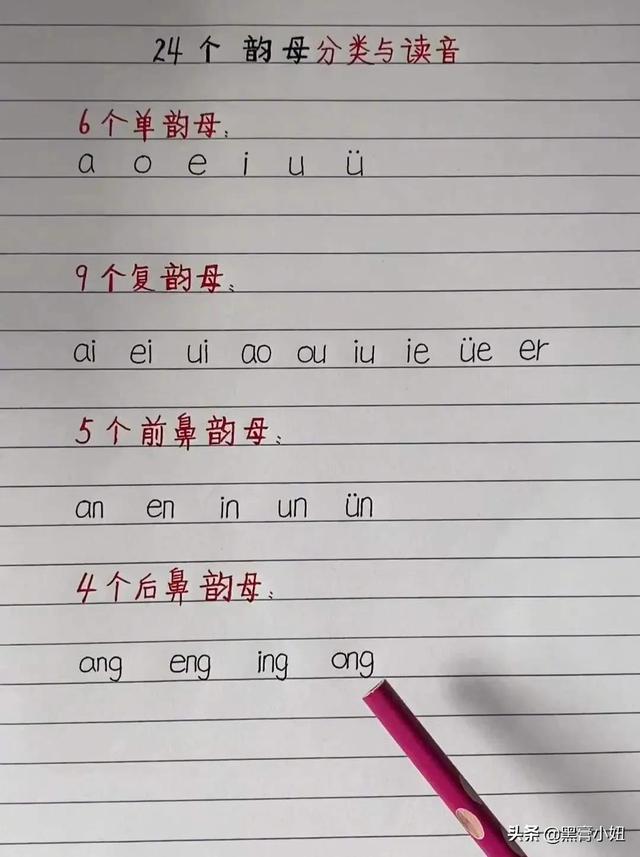 24个 韵母分类与读音
6个单韵母:
a o e i u ü
9个复韵母:
ai ei ui ao ou iu ie üe er
5个前鼻韵母:
an en in un ün
4个后鼻韵母:
ang eng ing ong
头条 @黑膏小妞